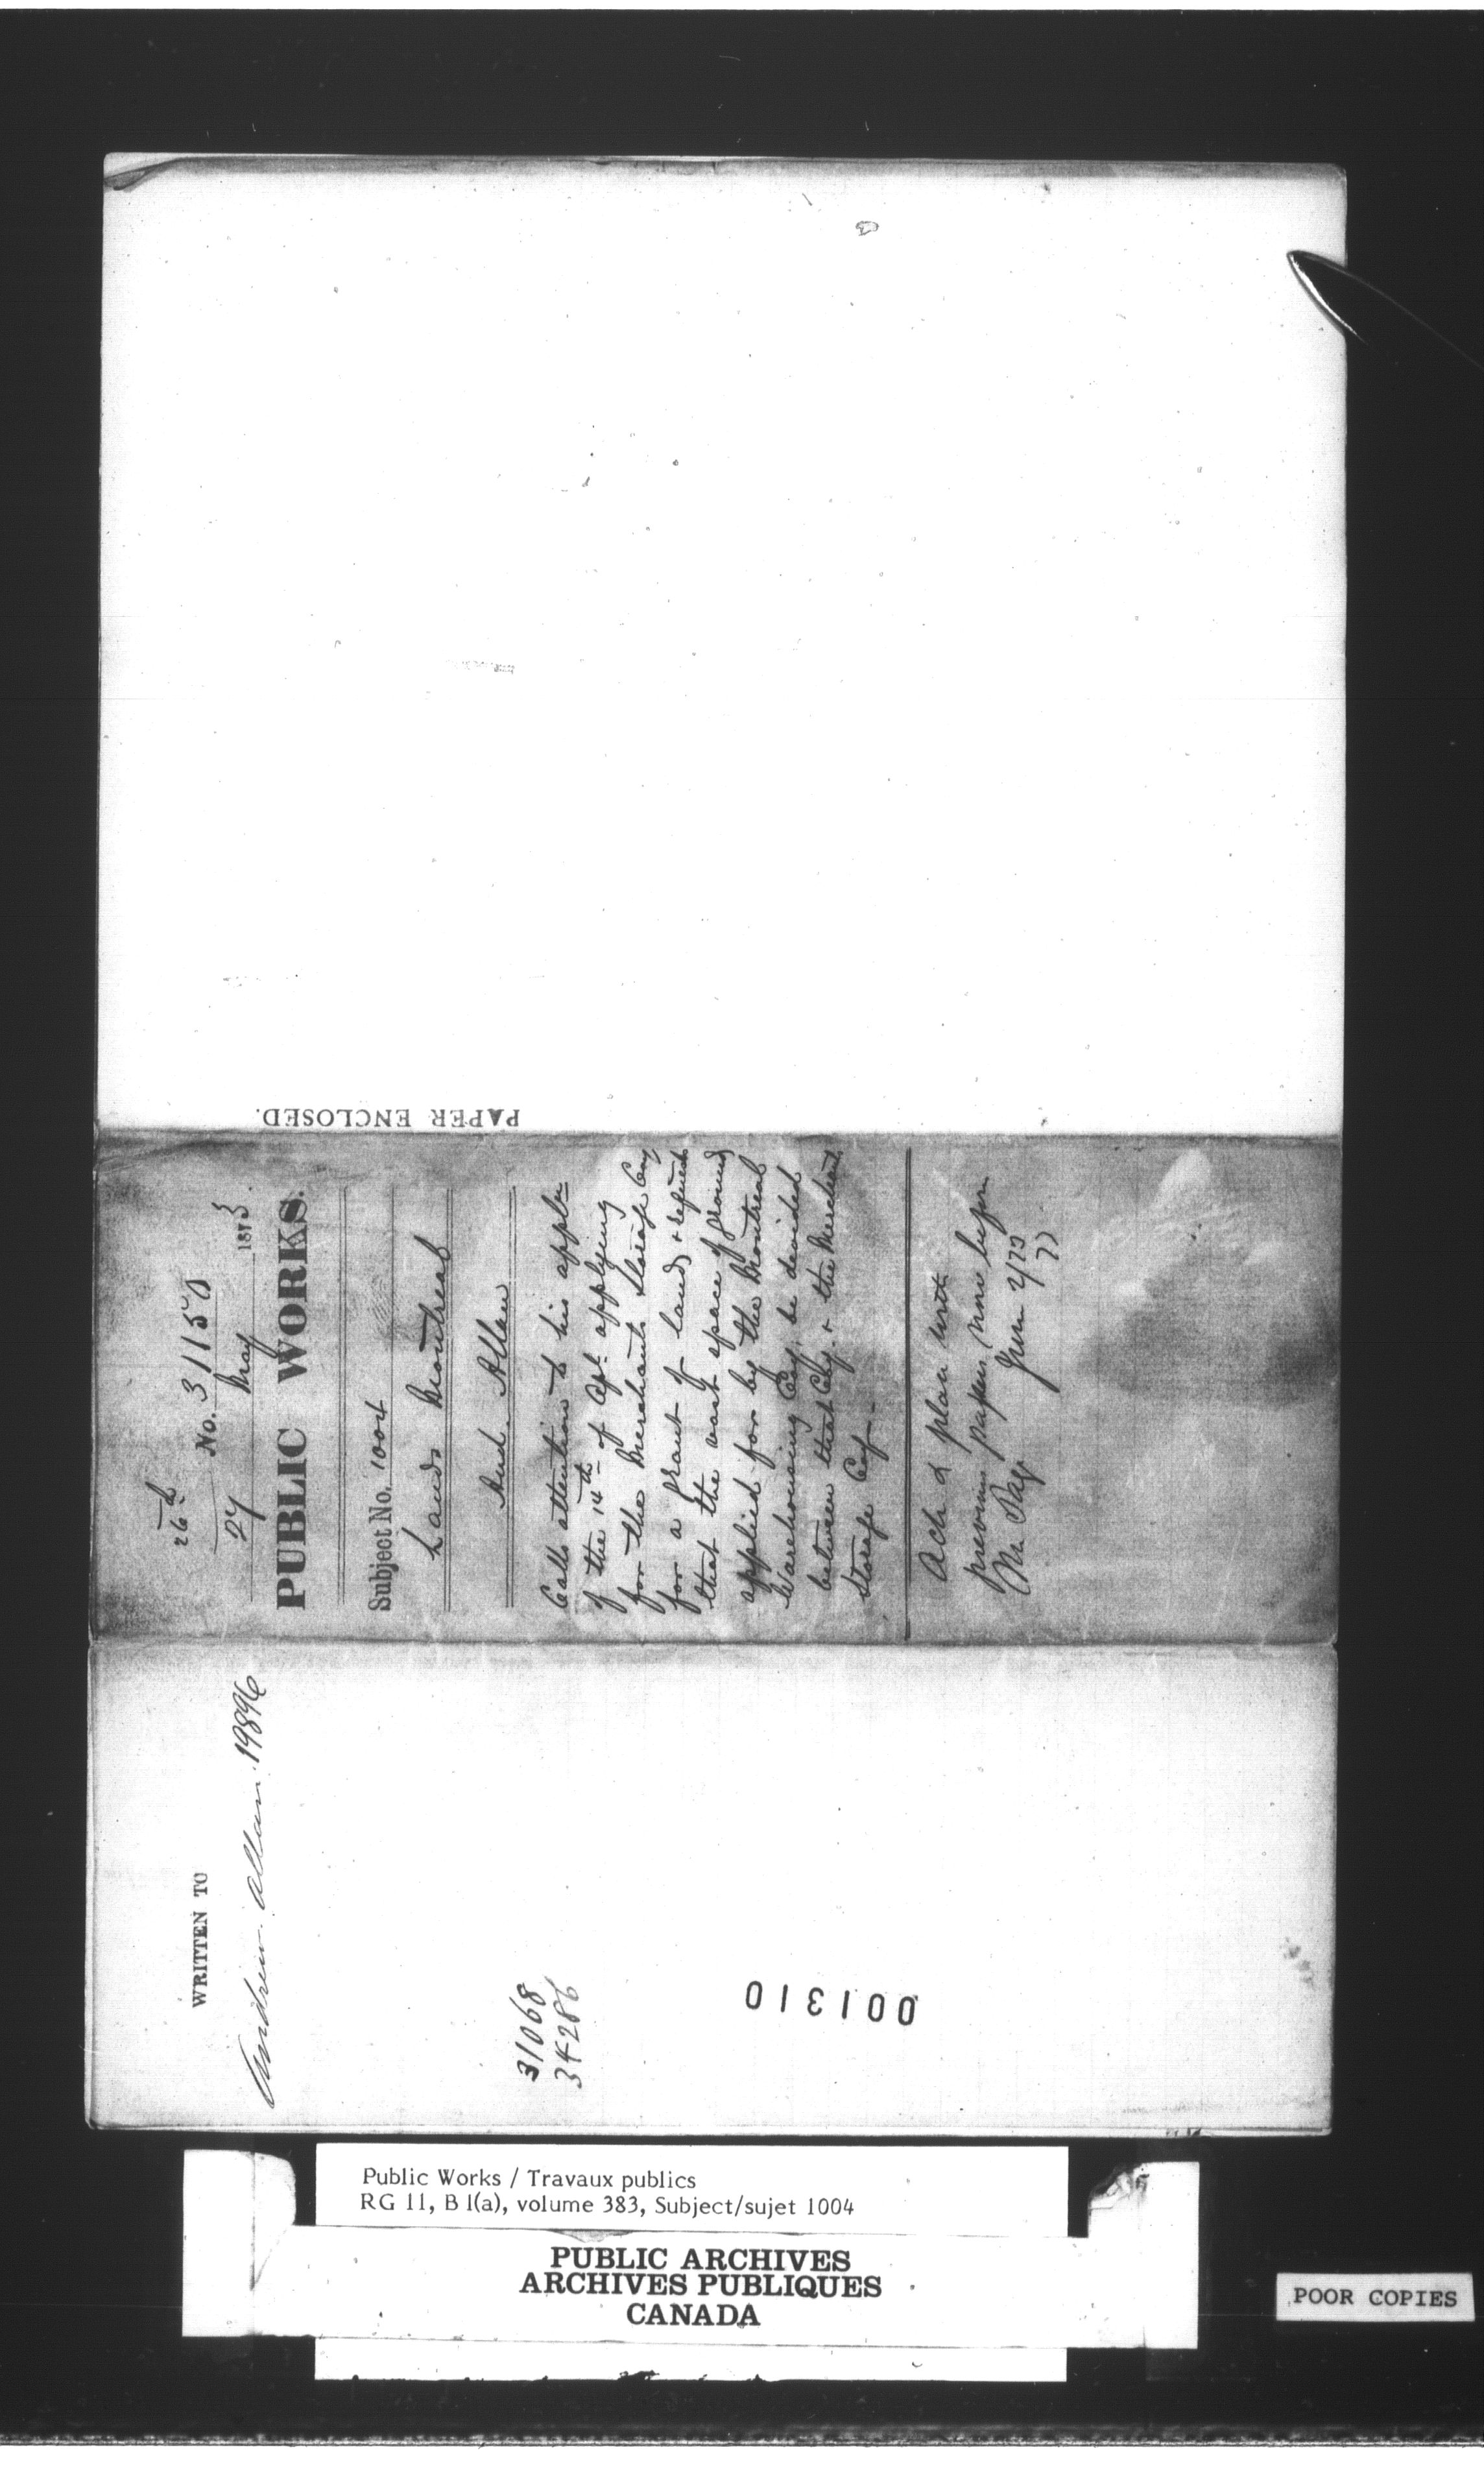 PAPER ENCLOSED.
26th
No. 31150
27 May 1873.
PUBLIC WORKS.
Subject No. 1004
Lands Montreal
And. Allan
Calls attention to his appln
of the 14th of Apl. applying
for the Merchants Storage Coy
for a grant of land, & requests
that the vast space of ground
applied for by the Montreal
Warehousing Coy. be divided
between that Coy. & the Merchants
Storage Coy.
Ack & place with
previous papers now before
Mr. Page
WRITTEN TO
Andrew Allan 19896
31068
34286
001310
Public Works / Travaux publics
RG 11, B 1(a), volume 383, Subject/sujet 1004
PUBLIC ARCHIVES
ARCHIVES PUBLIQUES
CANADA
POOR COPIES